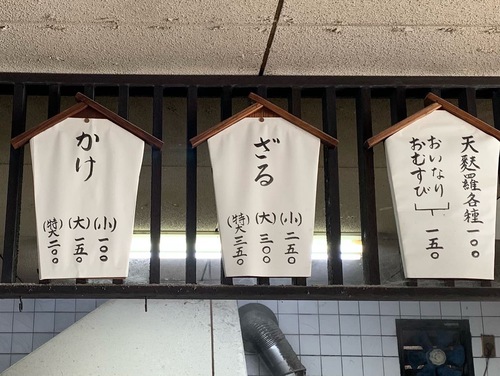 天麩羅各種一〇〇
おいなり
おむすび
一五〇
ざる
(小)二五〇
(大)三〇〇
(特大)三五〇
かけ
(小)一〇〇
(大)一五〇
(特大)二〇〇